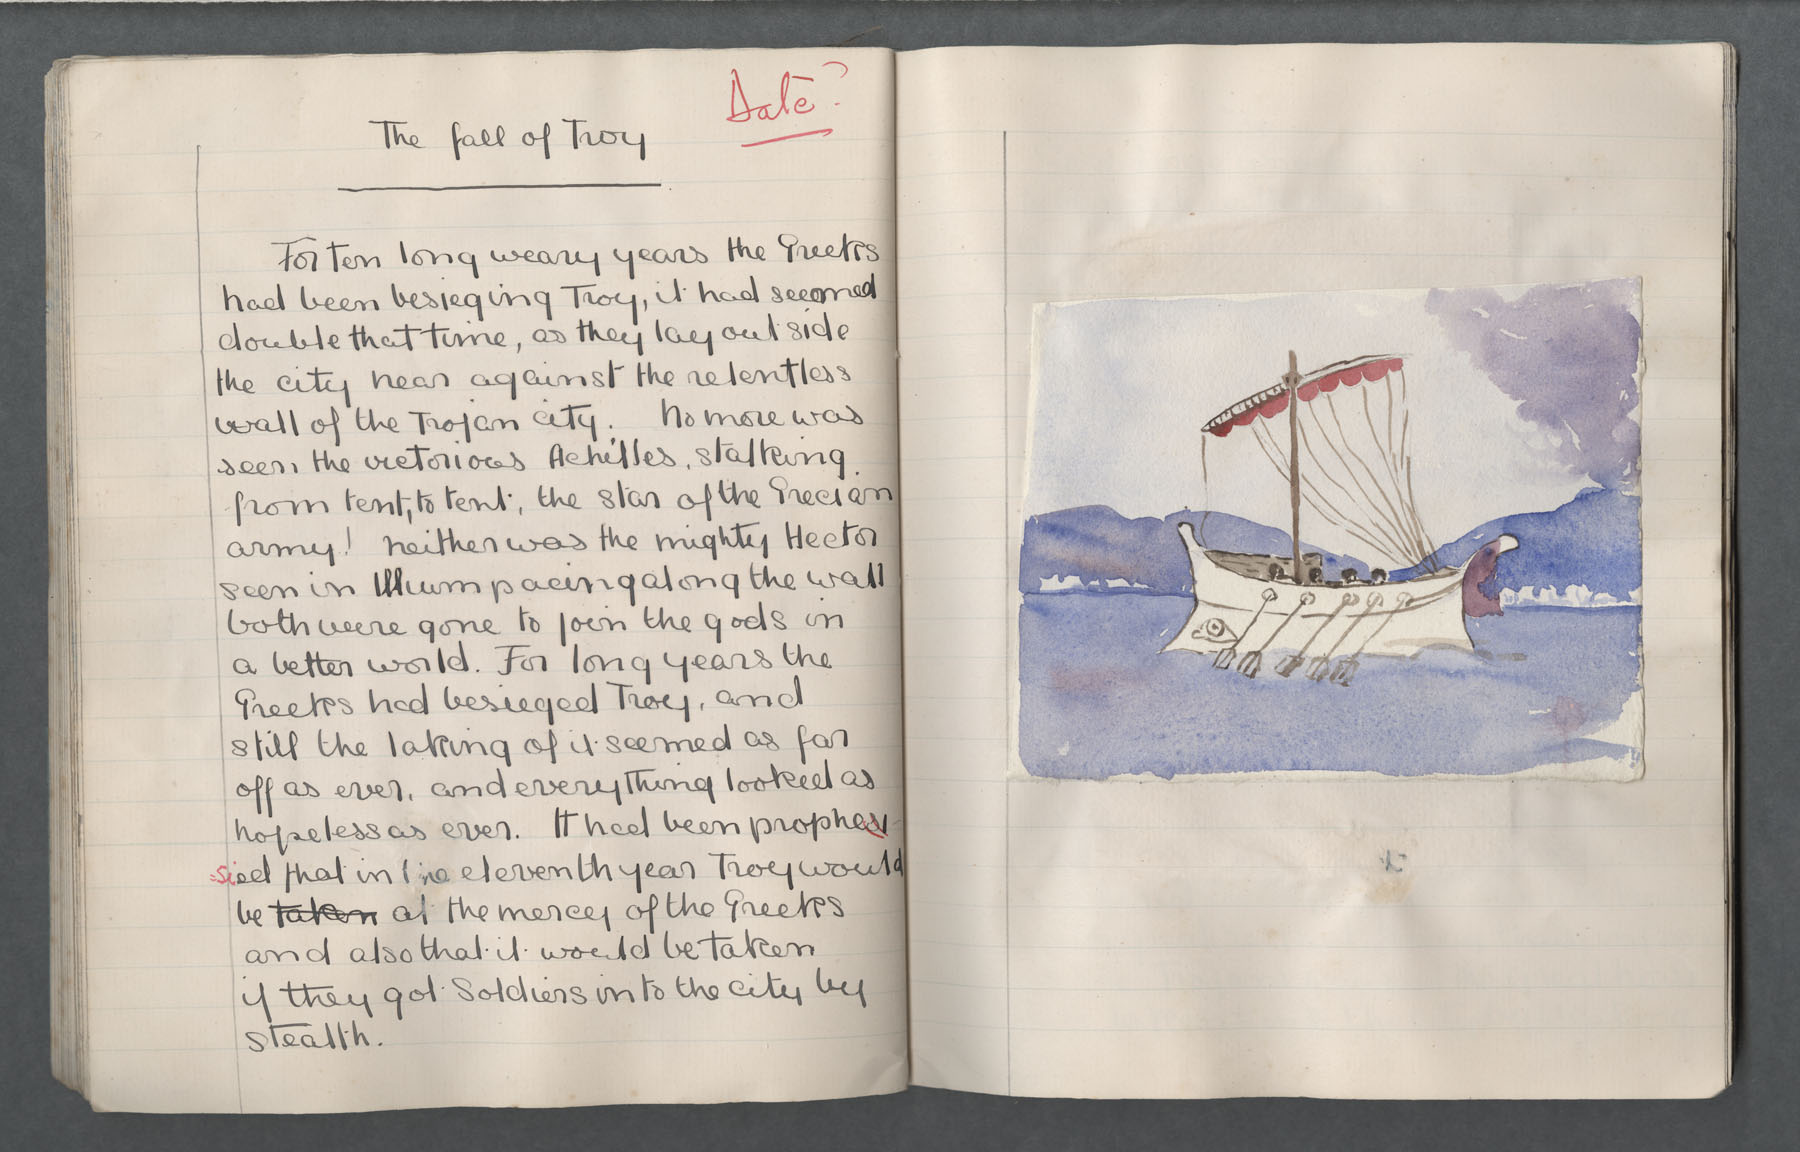 Date?
The fall of Troy
For ten long weary years the Greeks
had been besieging Troy, it had seemed
double that time, as they lay out side
the city near against the relentless
wall of the Trojan city. No more was
seen the victorious Achilles, stalking
from tent, to tent, the star of the Grecian
army! neither was the mighty Hector
seen in Illium pacing along the wall
both were gone to join the gods in
a better world. For long years the
Greeks had besieged Troy, and
still the taking of it seemed as far
off as ever, and everything looked as
hopeless as ever. It had been prophe
=sied that in the eleventh year Troy would
be taken at the mercy of the Greeks
and also that it would be taken
if they got soldiers into the city by
stealth.